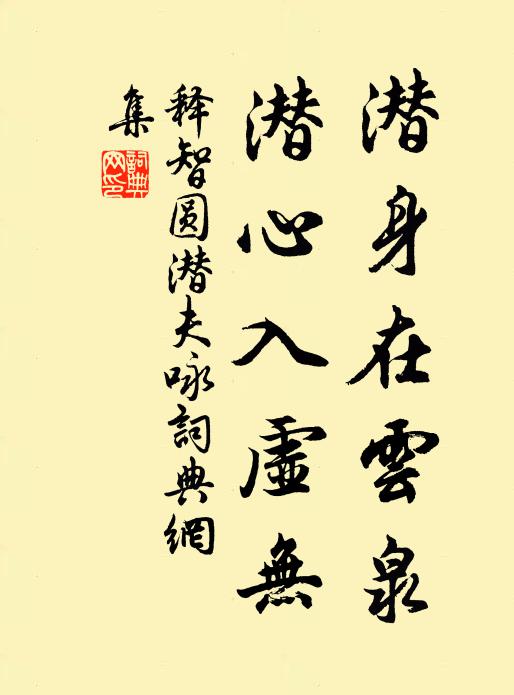 潜身在雲泉
潜心入虛無
释智圆潜夫咏詞典網
集
詞典網印